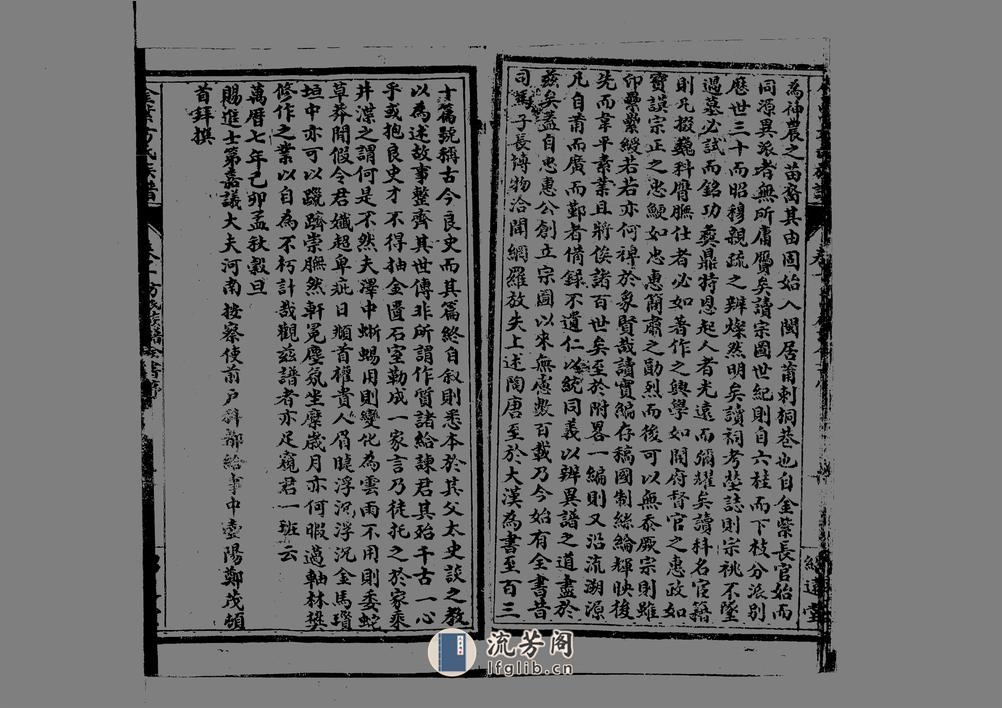 為神農之苗裔其由固始入閩居莆刺桐巷也自金紫長官始而
同源異派者無所庸贗矣讀宗圖世紀則自六桂而下枝分派別
歷世三十而昭穆親疏之辨燦然明矣讀祠考塋誌則宗祧不墜
過墓必試而銘功彝鼎特恩起人者光遠而彌耀矣讀科名宦籍
則凡掇巍科膺膴仕者必如著作之興學如開府督官之惠政如
寶謨宗正之忠鯁如忠惠簡肅之勛烈而後可以無忝厥宗則雖
印纍纍綬若若亦何裨於象賢哉讀實編存稿國制絲綸輝映後
先而韋平素業且將俟諸百世矣至於附畧一編則又沿流溯源
凡自莆而廣而鄞者備錄不遺仁以統同義以辨異譜之道盡於
茲矣蓋自忠惠公創立宗圖以來無慮數百載乃今始有全書昔
司馬子長博物洽聞網羅放失上述陶唐至於大漢為書至百三
十篇號稱古今良史而其篇終自叙則悉本於其父太史談之教
以為述故事整齊其世傳非所謂作質諸給諫君其殆千古一心
乎或抱良史才不得抽金匱石室勒成一家言乃徒托之於家乘
井渫之謂何是不然夫澤中蜥蜴用則變化為雲雨不用則委蛇
草莽間假令君孅趨卑疵日頫首權貴人眉睫浮沉浮沉金馬瑣
垣中亦可以躐躋崇膴然軒冕塵氛坐糜歲月亦何暇邁軸林樊
修作之業以自為不朽計哉觀茲譜者亦足窺君一班云
萬曆七年己卯孟秋穀旦
賜進士第嘉議大夫河南按察使前戶科都給事中壺陽鄭茂頓
首拜撰
方氏族譜
方氏族譜全書序
流芳阁
lfglib.cn